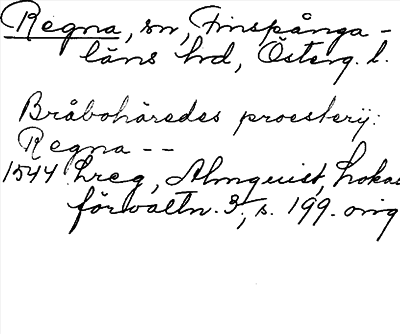 Regna, sn, Finspånga-
läns hd, Österg. l.
Bråbohäredes proesterij:
Regna --
1544 Lreg, Almquist, Lokal
förvaltn. 3, s. 199. orig